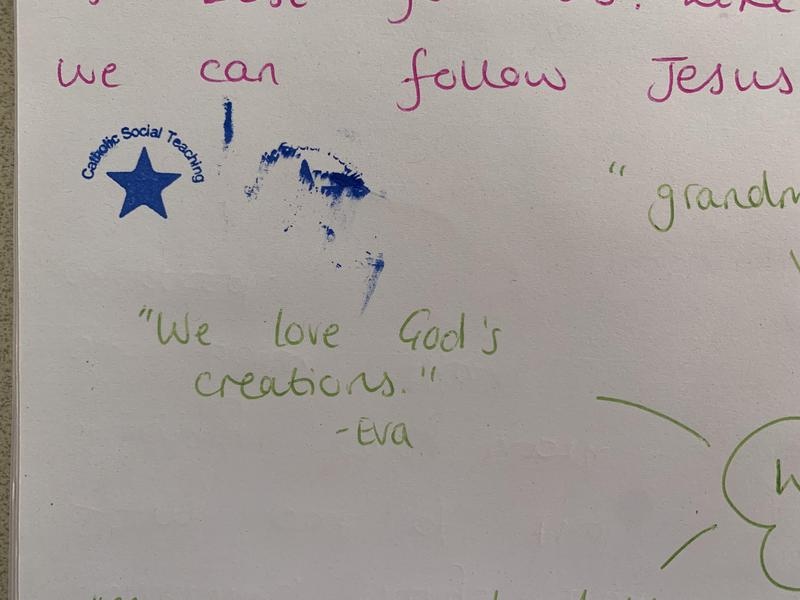 we can follow Jesus
Catholic Social Teaching
" grandm
"We love God's
creations."
-Eva